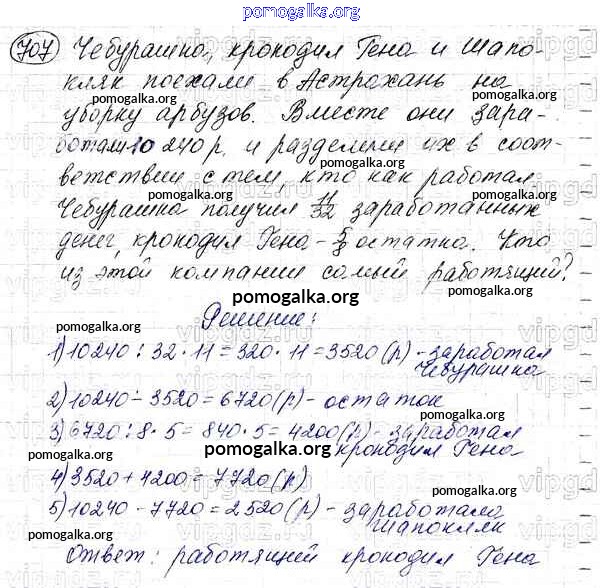 pomogalka.org
707 Чебурашка, крокодил Гена и Шапо-
кляк поехали в Астрахань на
pomogalka.org pomogalka.org
уборку арбузов. Вместе они зара-
pomogalka.org
ботали 10 240 р. и разделили их в соот-
pomogalka.org
ветствии с тем, кто как работал
pomogalka.org pomogalka.org
Чебурашка получил 11/32 заработанных
денег, крокодил Гена - 5/8 остатка. Кто
pomogalka.org pomogalka.org
из этой компании самый работящий?
pomogalka.org
Решение:
pomogalka.org pomogalka.org
1) 10240 : 32 · 11 = 320 · 11 = 3520 (р) - заработал
Чебурашка
pomogalka.org
2) 10240 - 3520 = 6720 (р) - остаток
pomogalka.org pomogalka.org
3) 6720 : 8 · 5 = 840 · 5 = 4200 (р) - заработал
pomogalka.org
крокодил Гена
4) 3520 + 4200 = 7720 (р)
pomogalka.org pomogalka.org
5) 10240 - 7720 = 2520 (р) - заработала
Шапокляк
pomogalka.org pomogalka.org
Ответ: работящий крокодил Гена